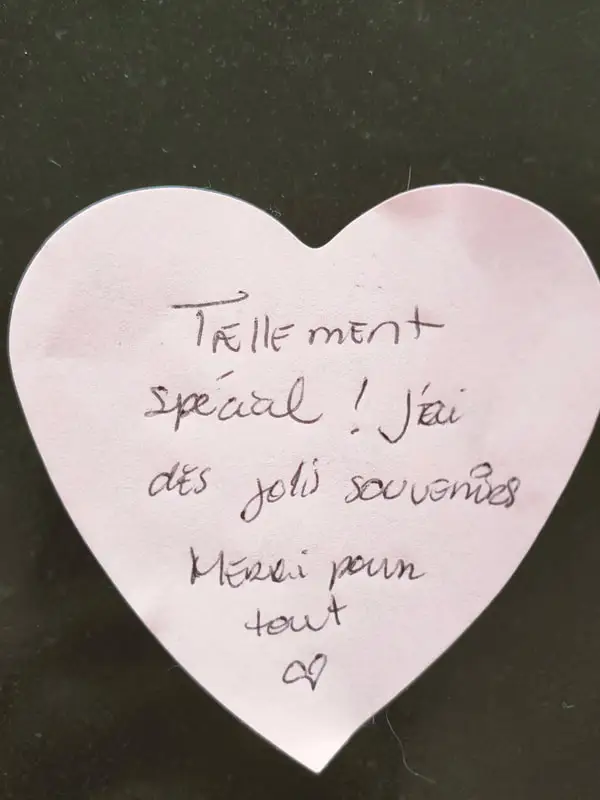 Tellement
spécial ! J'ai
des jolis souvenirs
Merci pour
tout
♡